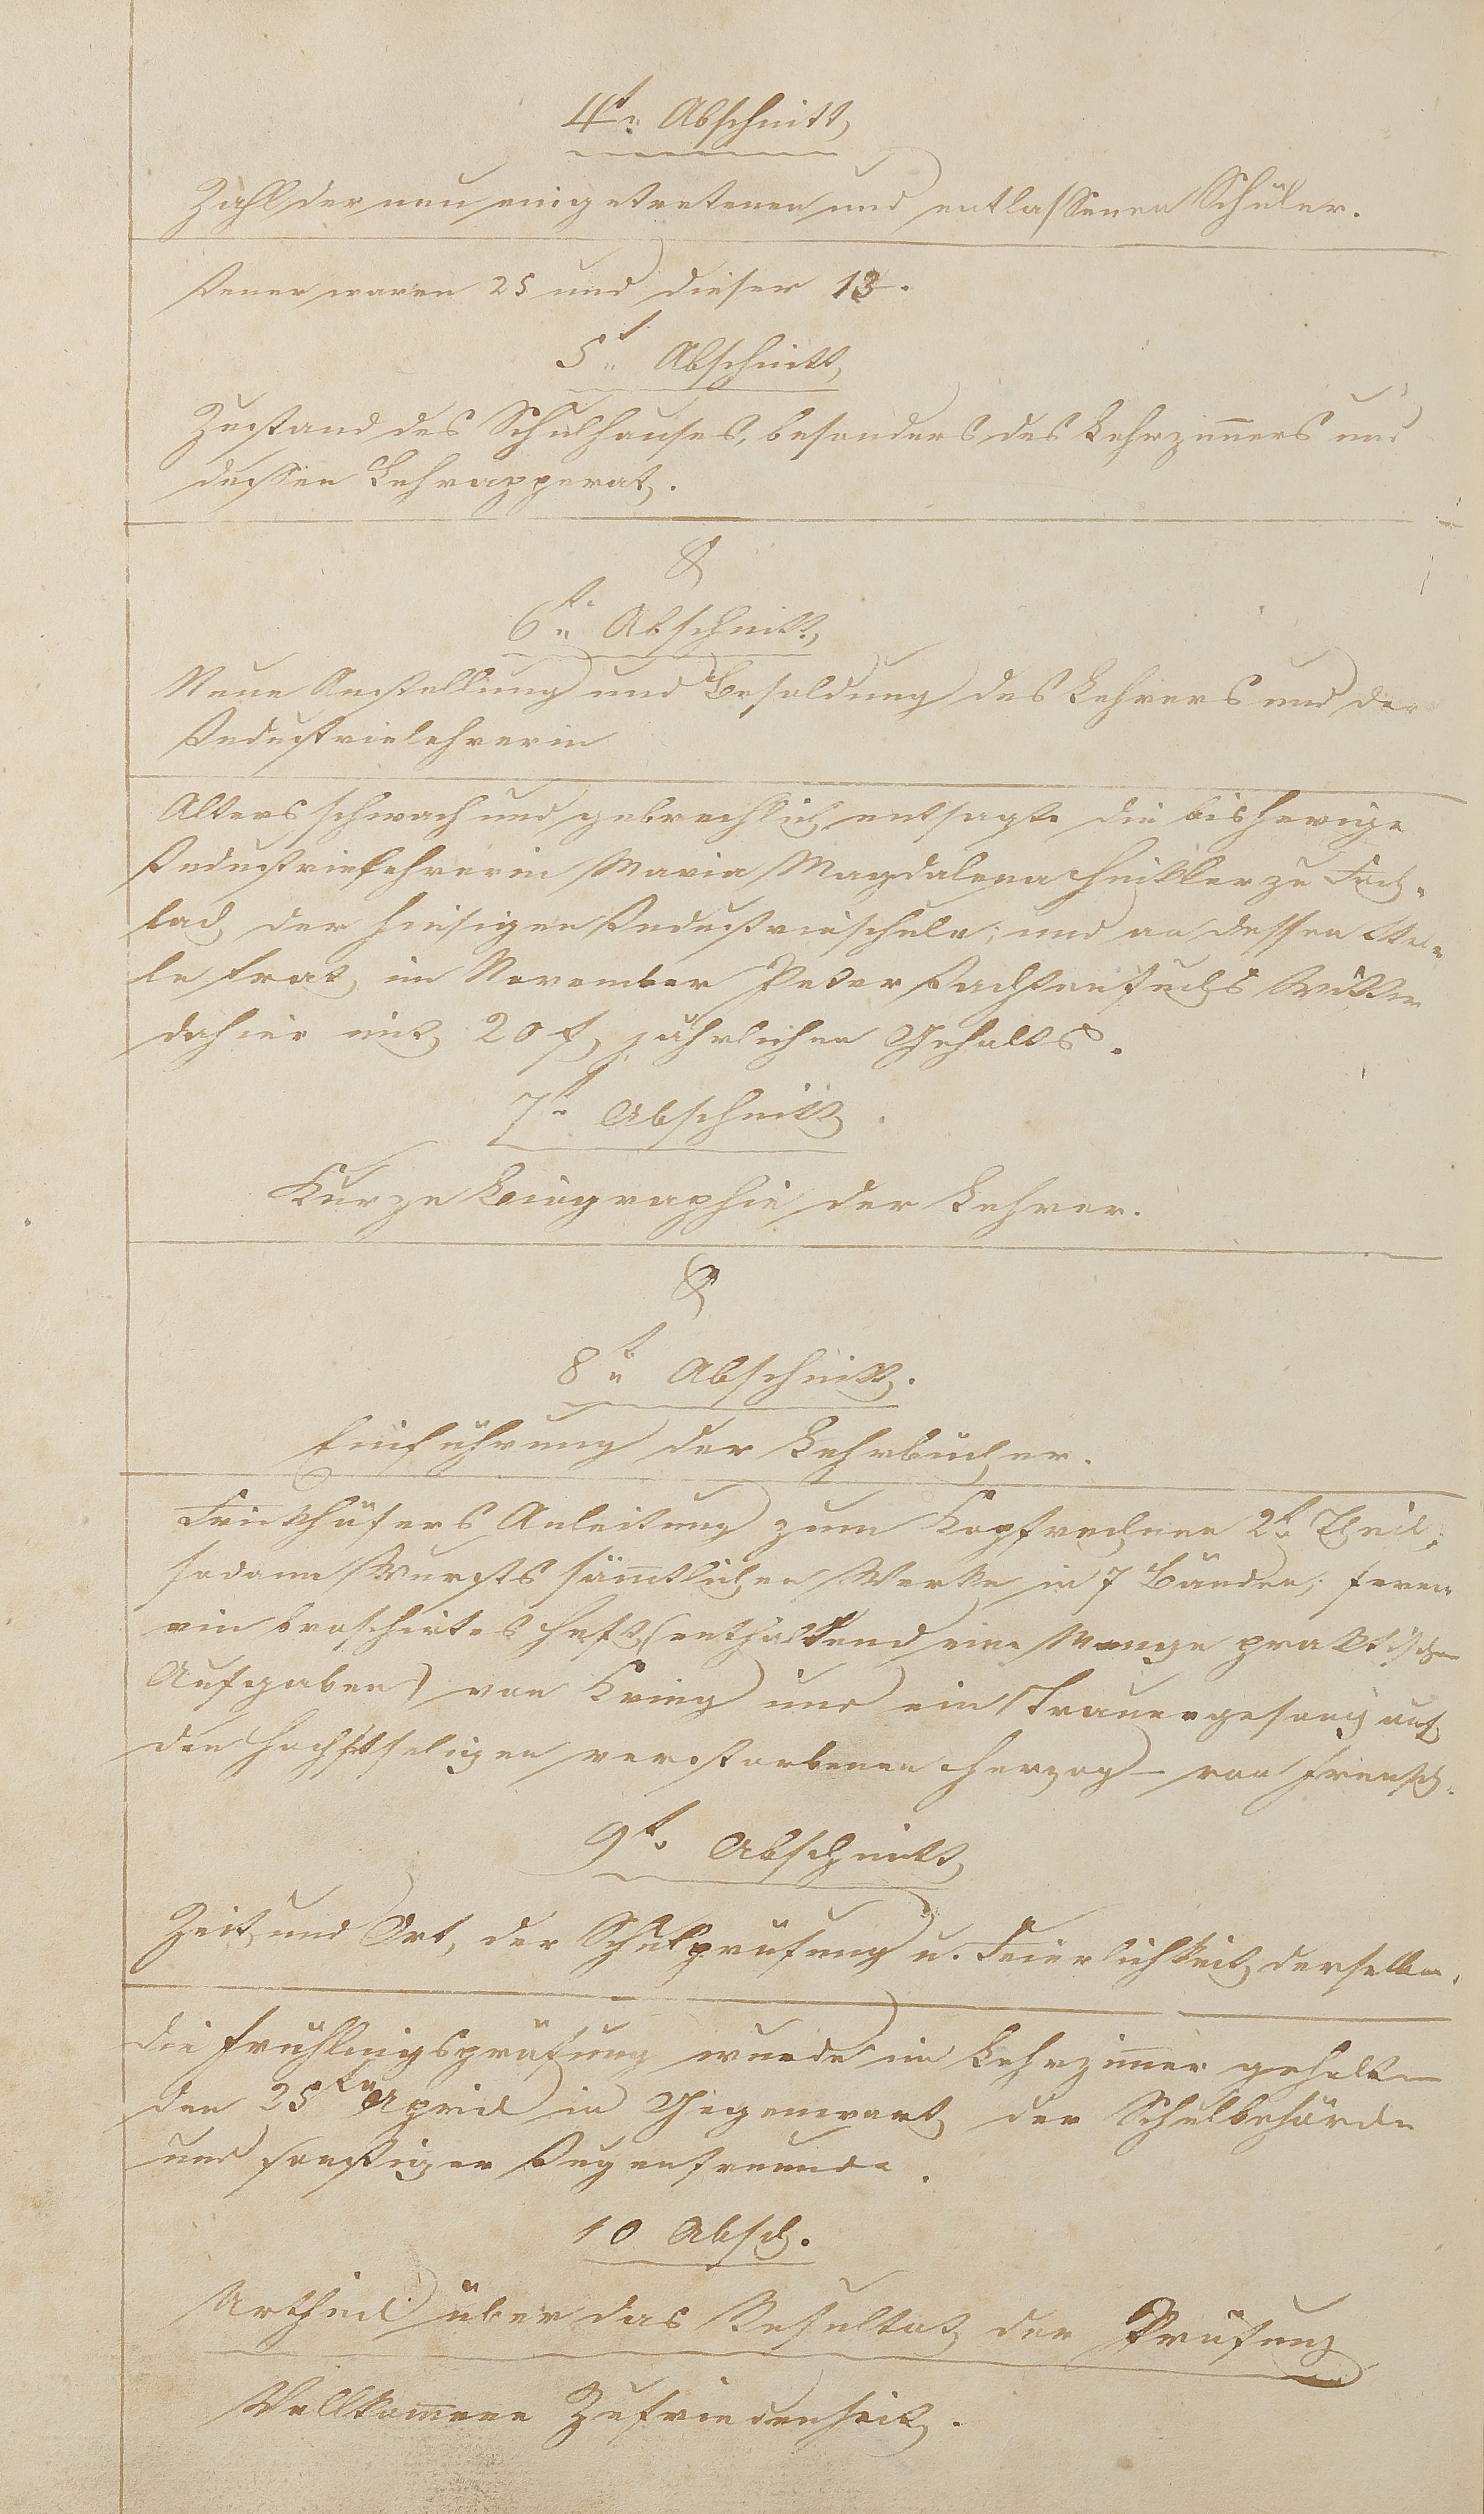 4t. Abschnitt,
Zahl der neu eingetretenen und entlassenen Schüler.
Jener waren 25 und dieser 13.
5t. Abschnitt,
Zustand des Schulhauses, besonders des Lehrzimmers und
dessen Lehrapperat.
6t. Abschnitt,
Neue Anstellung und Besoldung des Lehrers und der
Industrielehrerin
Altersschwach und gebrechlich entsagte die bisherige
Industrielehrerin Maria Magdalena zu
der hiesigen Industrieschule; und an dessen Stel-
le trat im November Peter Wittwe
dahier mit 20 f. jährlichen Gehalts.
7t. Abschnitt.
Kurze Biographie der Lehrer.
8t. Abschnitt.
Einführung der Lehrbücher.
Frickhöfers Anleitung zum Kopfrechnen 2t. Theil;
sodann Wursts sämtlichen Werke in 7 Bänden; ferner
ein broschirtes Heft (enthaltend eine Menge praktischen
Aufgaben) von Kring und ein Trauergesang auf
den höchstseligen verstorbenen Herzog – von
9t. Abschnitt,
Zeit und Ort, der Schulprüfung u. Feierlichkeit derselben.
Die Frühlingsprüfung wurde im Lehrzimmer gehalten
den 25ten April in Gegenwart der Schulbehörde
und sonstiger Jugenfreunde.
10 Absch.
Urtheil über das Resultat der Prüfung
Vollkommene Zufriedenheit.